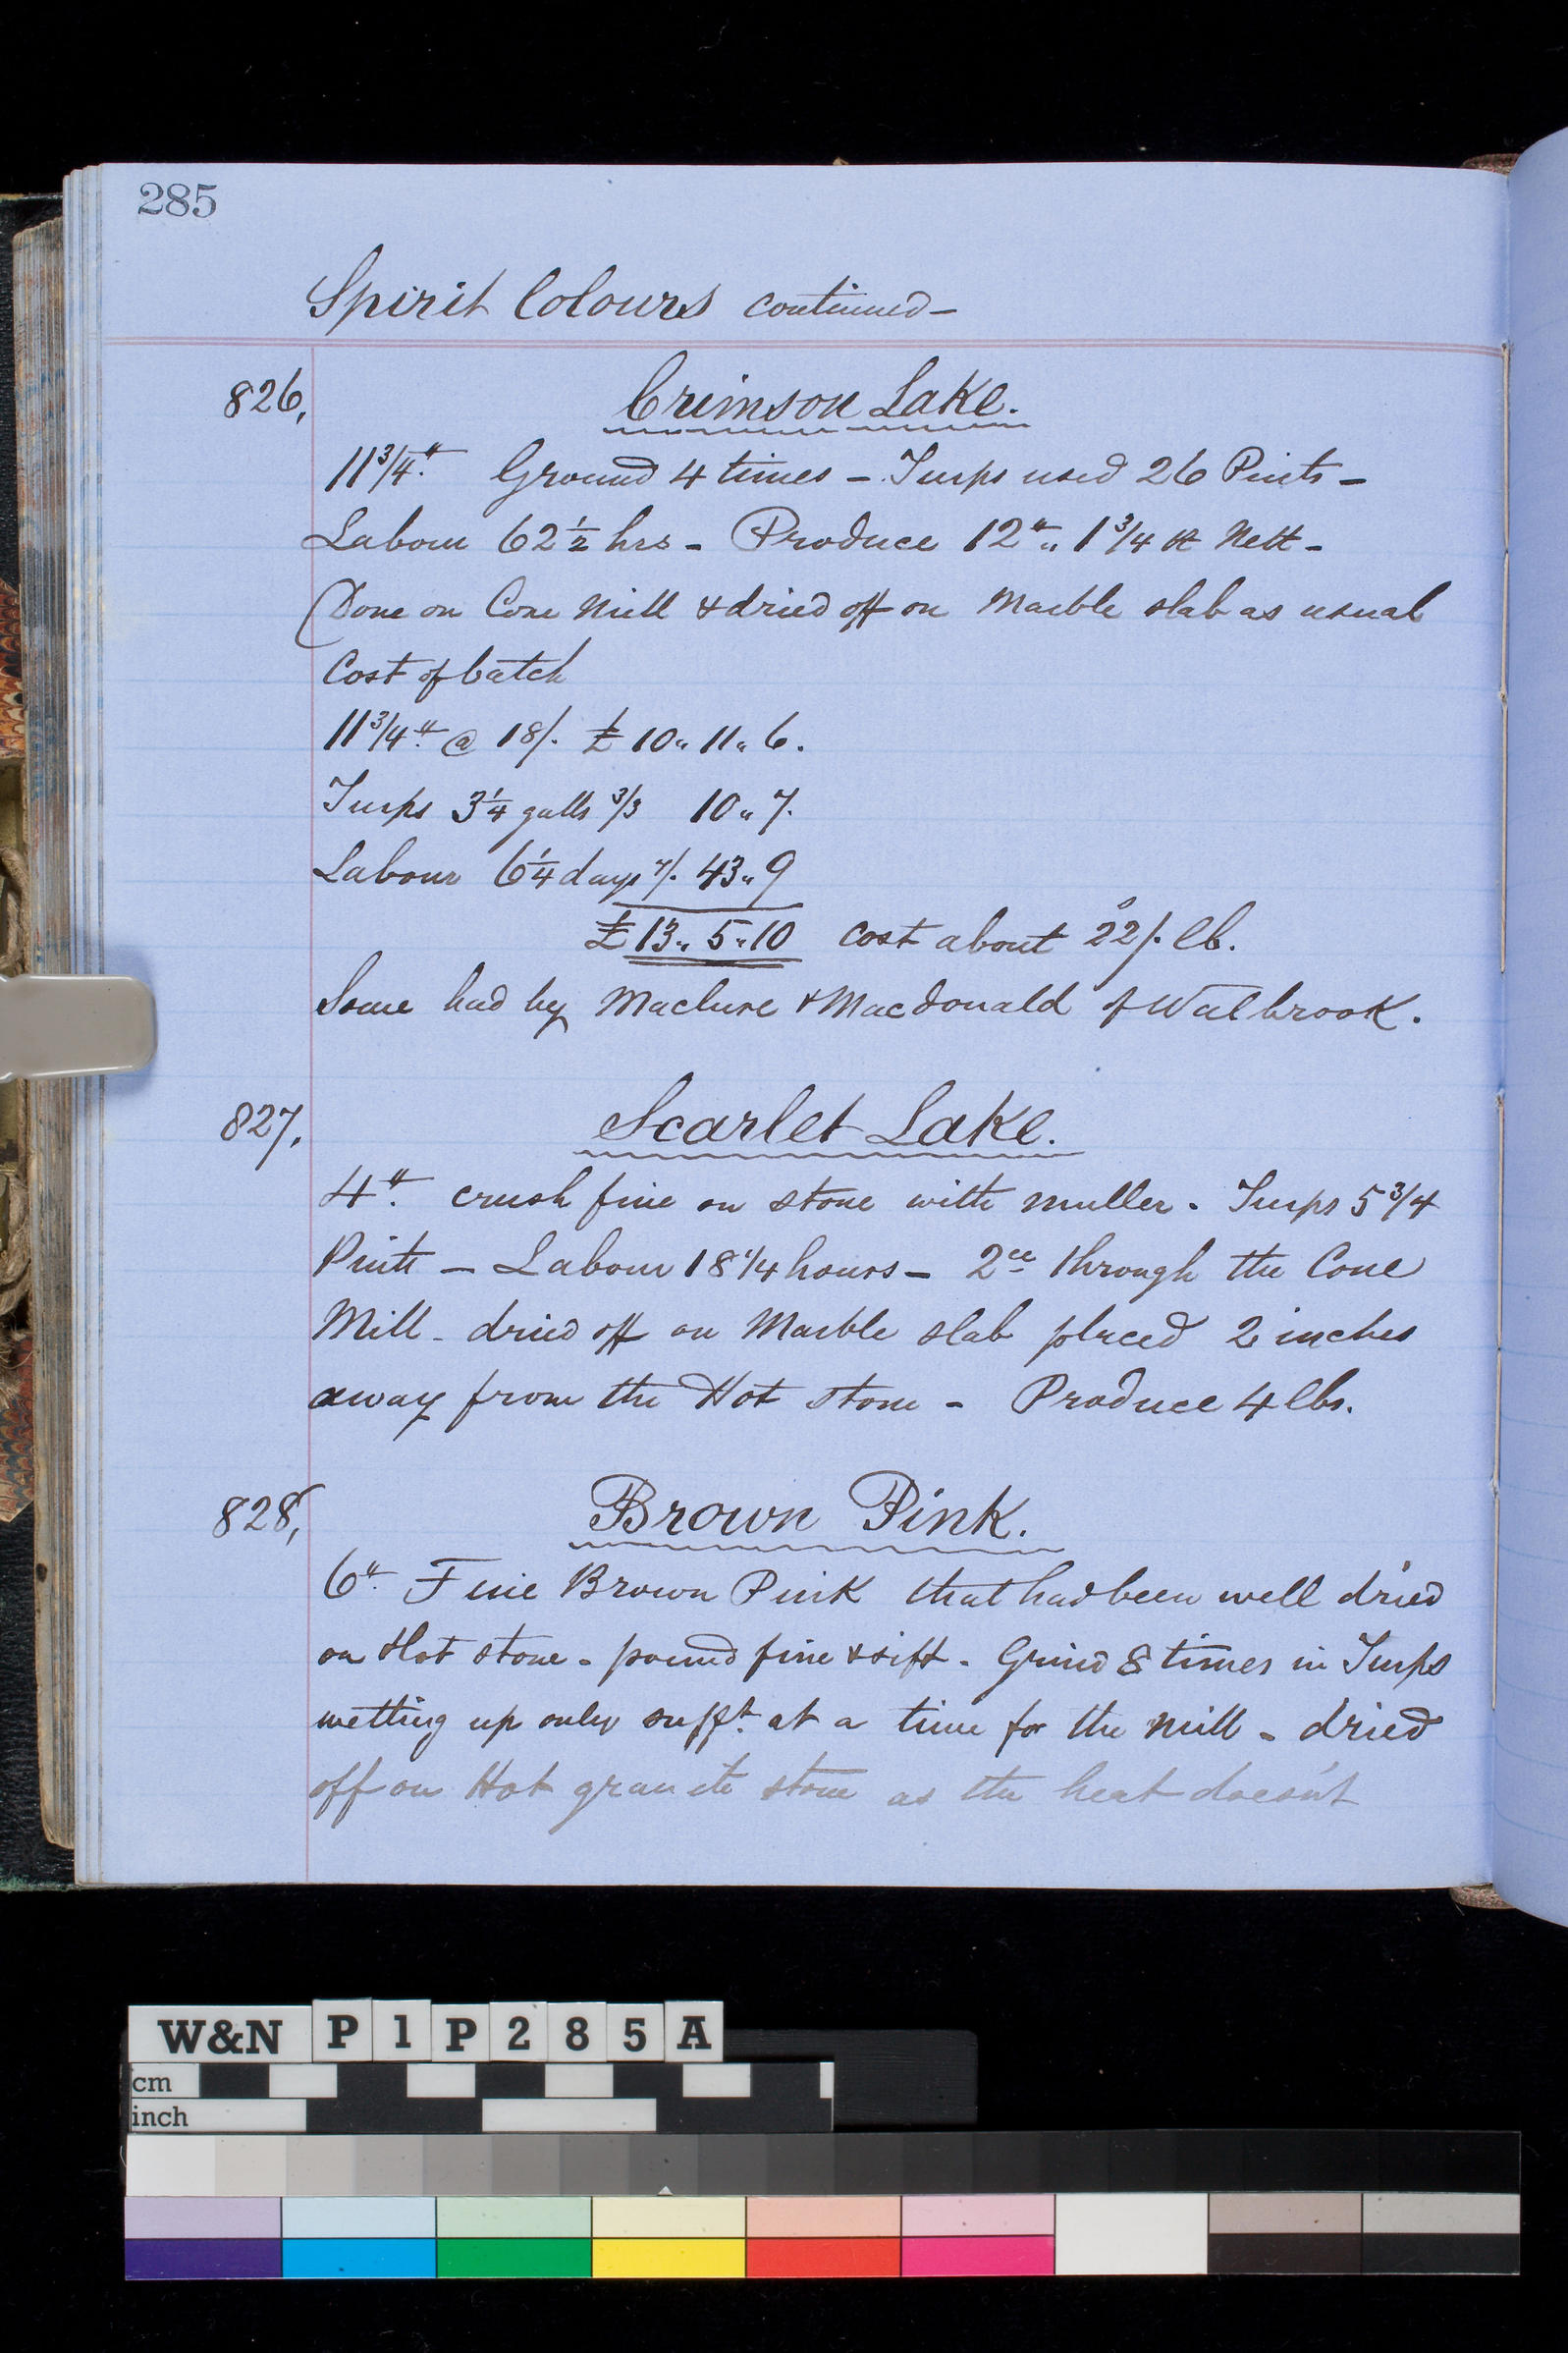 285
Spirit Colours continued -
826, Crimson Lake.
11 3/4 lb. Ground 4 times - Turps used 26 Pints -
Labour 62 1/2 hrs - Produce 12 lb „ 1 3/4 oz Nett -
(Done on Cone Mill & dried off on Marble slab as usual
Cost of batch
11 3/4 lb. @ 18/. £ 10 „ 11 „ 6.
Turps 3 1/4 galls 3/3 10 „ 7.
Labour 6 1/4 days 7/. 43 „ 9
£ 13 „ 5 „ 10 cost about 22/. lb.
Some had by Maclure & Macdonald of Walbrook.
827, Scarlet Lake.
4 lb. crush fine on stone with muller. Turps 5 3/4
Pints - Labour 18 1/4 hours - 2ce through the Cone
Mill - dried off on Marble slab placed 2 inches
away from the Hot stone - Produce 4 lbs.
828, Brown Pink.
6 lb. Fine Brown Pink that had been well dried
on Hot stone - pound fine & sift - Grind 8 times in Turps
wetting up only sufft. at a time for the mill - dried
off on Hot granite stone as the heat doesn't
W&N P1P285A
cm
inch